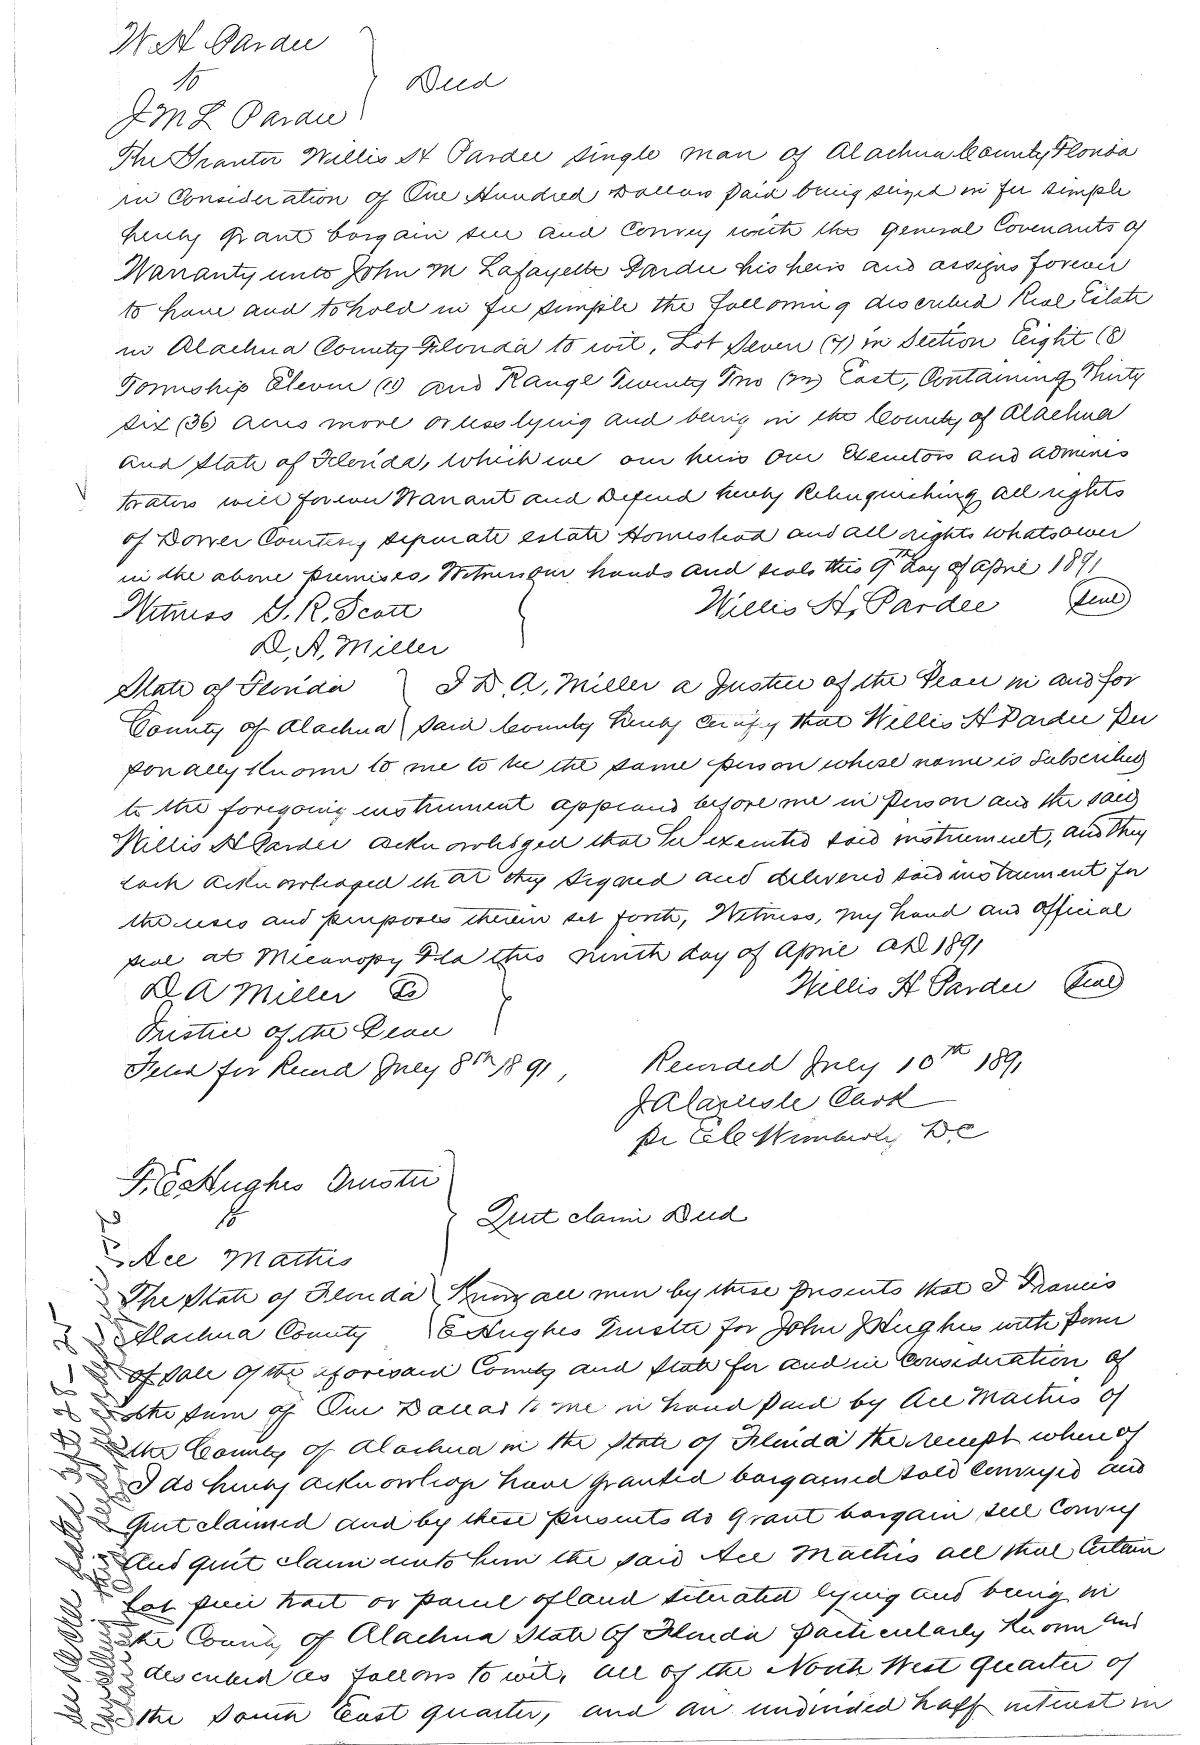 W. H. Pardee
to
Deed
J M L Pardee
The Grantor Willis H Pardee single man of Alachua County Florida
in Consideration of One Hundred Dollars paid being seized in fee simple
hereby grant bargain sell and Convey with the general Covenants of
Warranty unto John M Lafayette Pardee his heirs and assigns forever
to have and to hold in fee simple the following discribed Real Estate
in Alachua County Florida to wit, Lot Seven (7) in Section Eight (8)
Township Eleven (11) and Range Twenty Two (22) East, Containing Thirty
six (36) acres more or less lying and being in the County of Alachua
and State of Florida, which we our heirs our Executors and adminis
trators will forever Warrant and Defend hereby Relinquishing all rights
of Dower Courtesy separate estate Homestead and all rights whatsoever
in the above premises, Witness our hands and seals this 9th day of April 1891
Witness G. R. Scott
Willis H, Pardee Seal
D, A, Miller
State of Florida I D. A, Miller a Justice of the Peace in and for
County of Alachua said County hereby certify that Willis H Pardee Per
sonally Known to me to be the same person whose name is Subscribed
to the foregoing instrument appeared before me in Person and the said
Willis H Pardee acknowledged that he executed said instrument, and they
each acknowledged that they signed and delivered said instrument for
the uses and purposes therein set forth, Witness, my hand and official
seal at Micanopy Fla this ninth day of April AD 1891
D A Miller
Willis H Pardee Seal
Justice of the Peace
Filed for Record July 8th 1891,
Recorded July 10th 1891
J A Carlisle Clerk
Pr Wimberly D C
F. E. Hughes Trustee
to
Quit claim Deed
Ace Mathis
The State of Florida Know all men by these presents that I Francis
Alachua County E Hughes Trustee for John J Hughes with power
of sale of the aforesaid County and State for and in Consideration of
the sum of One Dollar to me in hand paid by Ace Mathis of
the County of Alachua in the State of Florida the receipt where of
I do hereby acknowledge have granted bargained sold conveyed and
quit claimed and by these presents do grant bargain sell Convey
and quit claim unto him the said Ace Mathis all that Certain
Lot piece tract or parcel of land situated lying and being in
the County of Alachua State of Florida particularly Known and
described as follows to wit, all of the North West quarter of
the South East quarter, and an undivided half interest in